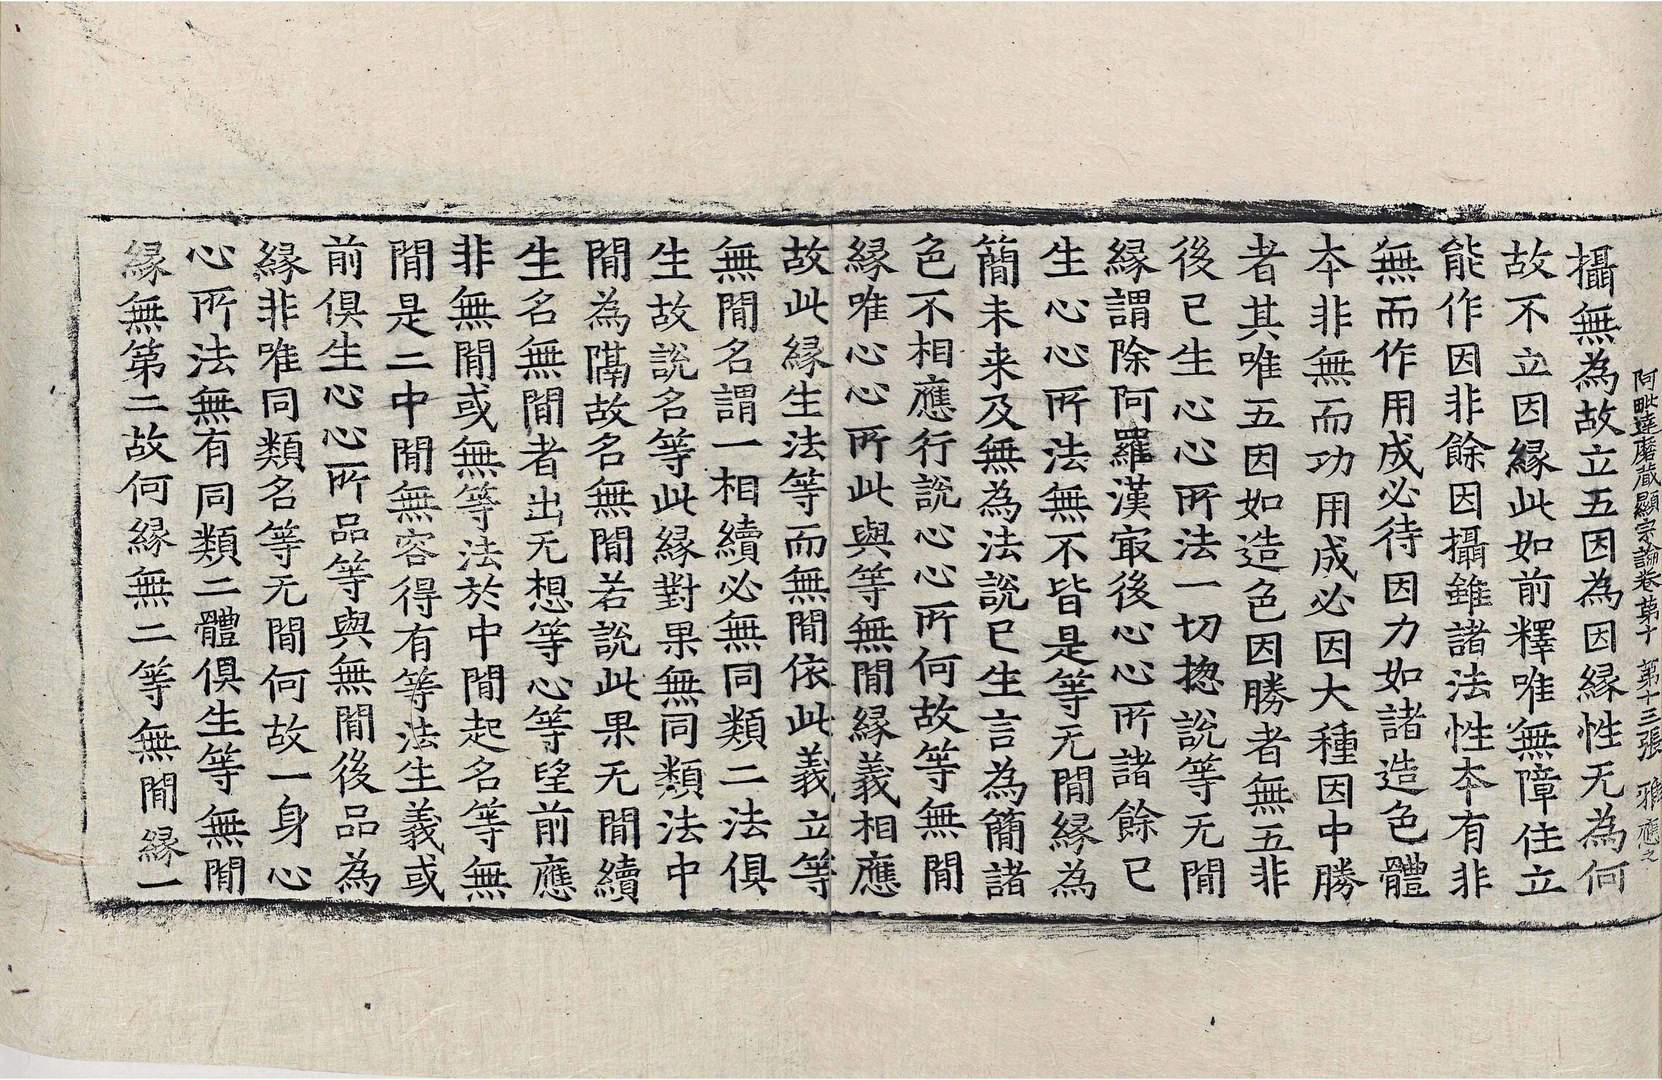 阿毗達磨藏顯宗論卷第十 第十三張 雅 應之
攝無為故立五因為因緣性无為何
故不立因緣此如前釋唯無障住立
能作因非餘因攝雖諸法性本有非
無而作用成必待因力如諸造色體
本非無而功用成必因大種因中勝
者其唯五因如造色因勝者無五非
後已生心心所法一切揔說等无閒
緣謂除阿羅漢㝡後心心所諸餘已
生心心所法無不皆是等无閒緣為
簡未来及無為法說已生言為簡諸
色不相應行說心心所何故等無閒
緣唯心心所此與等無閒緣義相應
故此緣生法等而無閒依此義立等
無閒名謂一相續必無同類二法俱
生故說名等此緣對果無同類法中
閒為隔故名無閒若說此果无閒續
生名無閒者出无想等心等望前應
非無閒或無等法於中閒起名等無
閒是二中閒無容得有等法生義或
前俱生心心所品等與無閒後品為
緣非唯同類名等无閒何故一身心
心所法無有同類二體俱生等無閒
緣無第二故何緣無二等無閒緣一